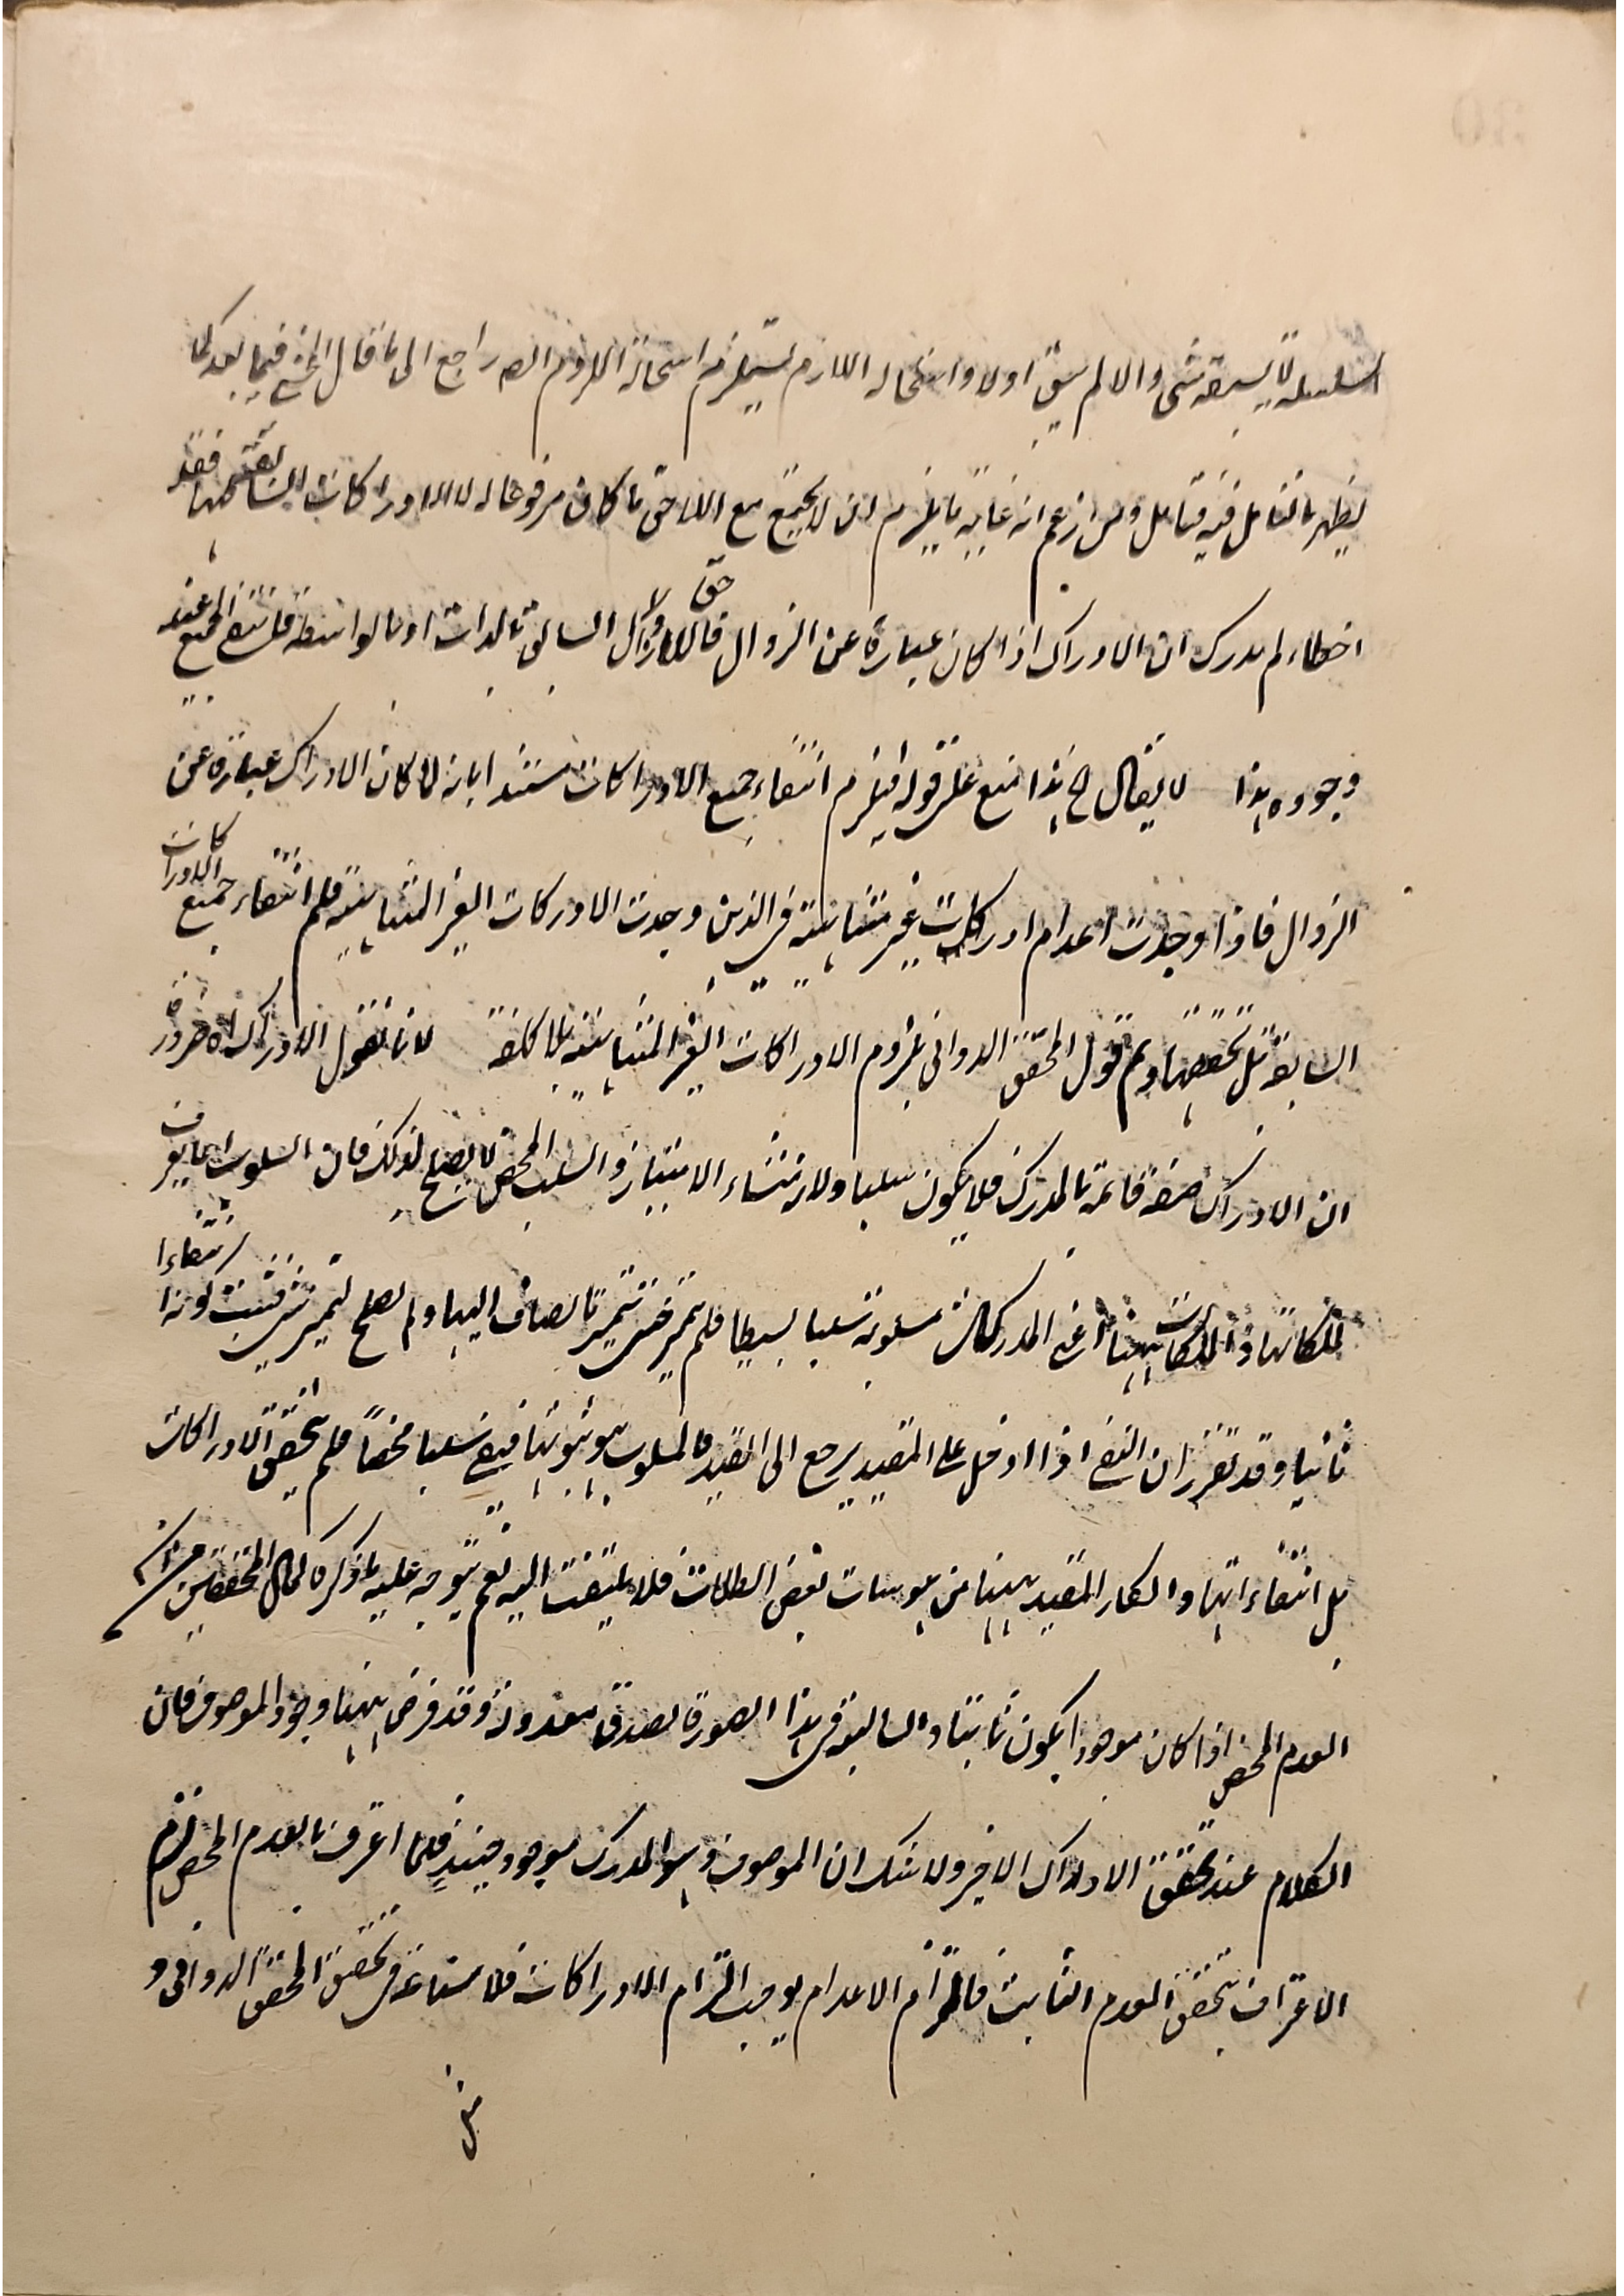 السلسلة لا يسبقه شئ والا لم يبق اولا واستحالة اللازم يستلزم استحالة الملزوم الصـ راجع الى ما قال المحشى فيما بعد كما
يظهر بالتامل فيه فتامل ومن زعم انه غاية ما يلزم ان لا يجتمع مع اللاحق ما كان مرفوعا له لا الادراكات السابقة جميعها فقد
اخطاء ولم يدرك ان الادراك اذا كان عبارة عن الزوال فاللاحق زوال السابق بالذات او بالواسطة فلينتف الجميع عند
وجوده هذا لا يقال ح هذا منع على قوله فيلزم انتفاء جميع الادراكات مستندا بانه لما كان الادراك عبارة عن
الزوال فاذا وجدت اعدام ادراكات غير متناهية فى الذهن وجدت الادركات الغير المتناهية فلم انتفاء جميع الادراكات
السابقة بل تحققها وتم قول المحقق الدوانى بلزوم الادراكات الغير المتناهية بلا كلفة لانا نقول الادراك لا ضرورة
ان الادراك صفة قائمة بالمدرك فلا يكون سلبا ولانه منشاء الامتياز والسلب المحض لا يصلح لذلك فان السلوب انما يعرف
بملكاتها والملكات ههنا اعنى المدركات مسلوبة سلبا بسيطا فلم يتميز حتى يتميز ما يضاف اليها ولم يصلح لتميز شئ فثبت كونه انتفاءا
ثانيا وقد تقرر ان النفى اذا ادخل على المقيد يرجع الى القيد فالمسلوب هو ثبوتها فيبقى سلبا محضاً فلم يتحقق الادراكات
بل انتفاءاتها وانكار المقيد ههنا من هوسات بعض الطلاب فلا يلتفت اليه نعم يتوجه عليه ما ذكره كمال المحققين من ان
العدم المحض اذا كان موجودا يكون ثابتا والسالبة فى هذا الصورة لصدق معدولة وقد فرض ههنا وجود الموصوف فان
الكلام عند تحقق الادراك الاخير ولا شك ان الموصوف وهو المدرك موجود حينئذٍ فلما اعترف بالعدم المحض لزم
الاعتراف بتحقق العدم الثابت فالتزام الاعدام يوجب التزام الادراكات فلا مساغة فى تحقيق المحقق الدوانى و